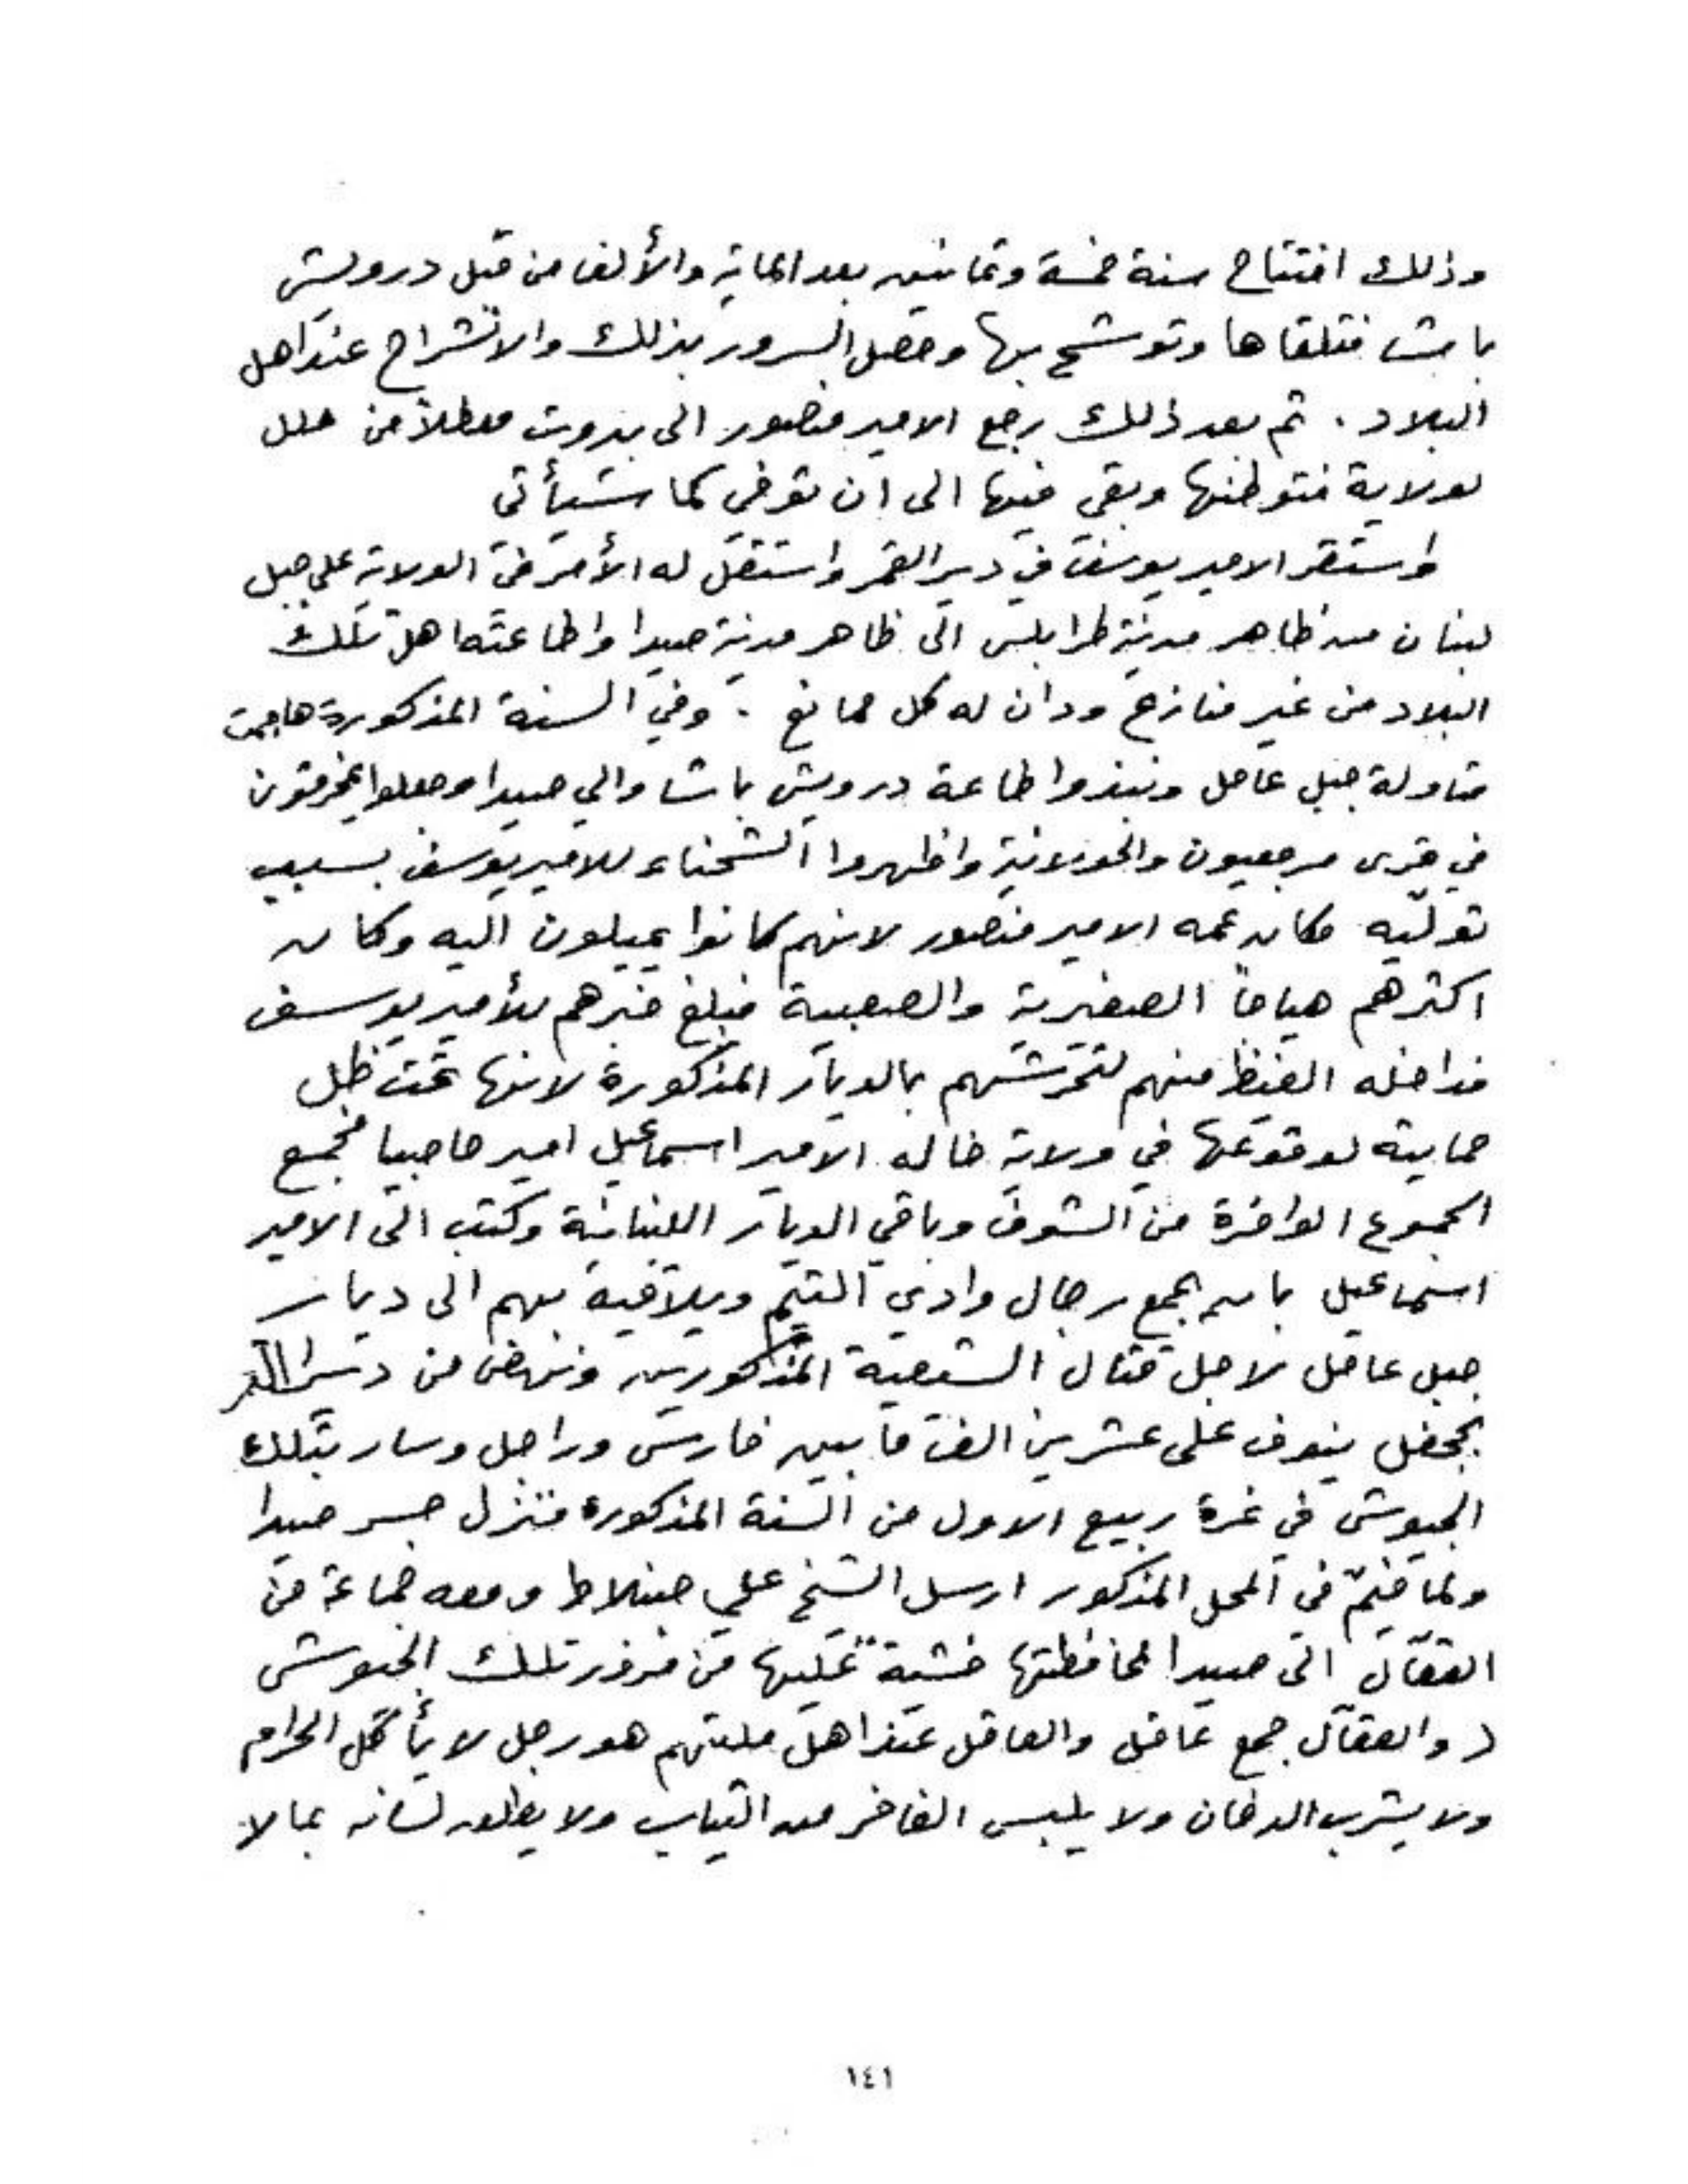 وذلك افتتاح سنة خمسة وثمانين بعد الماية والألف من قبل درويش
باشا فتلقاها وتوشح بها وحصل السرور بذلك والانشراح عند اهل
البلاد . ثم بعد ذلك رجع الامير منصور الى بيروت معطلاً من حلل
لولاية فتوطنها وبقي فيها الى ان توفي كما سيأتي
واستقر الامير يوسف في دير القمر واستقل له الأمر في الولاية على جبل
لبنان من ظاهر مدينة طرابلس الى ظاهر مدينة صيدا واطاعته اهل تلك
البلاد من غير منازع ودان له كل ممانع . وفي السنة المذكورة هاجت
متاولة جبل عامل ونبذوا طاعة درويش باشا والي صيدا وجعلوا يخرقون
في قرى مرجعيون والحولانية واظهروا الشحناء للامير يوسف بسبب
توليه مكان عمه الامير منصور لانهم كانوا يميلون اليه وكان
اكثرهم هياجاً الصغيرية والصعبية فبلغ خبرهم للأمير يوسف
فداخله الغيظ منهم لتحرشهم بالديار المذكورة لانها تحت ظل
حمايته لوقوعها في ولاية خاله الامير اسماعيل امير حاصبيا فجمع
الجموع الوافرة من الشوف وباقي الديار اللبنانية وكتب الى الامير
اسماعيل بان يجمع رجال وادي التيم ويلاقيه بهم الى ديار
جبل عامل لاجل قتال الشيعية المذكورين ونهض من دير القمر
بجحفل ينوف على عشرين الف ما بين فارس وراجل وسار بتلك
الجيوش في غرة ربيع الاول من السنة المذكورة فنزل جسر صيدا
ولما خيّم في المحل المذكور ارسل الشيخ علي جنبلاط ومعه جماعة من
العقّال الى صيدا لمحافظتها خشية عليها من ضرر تلك الجيوش
( والعقّال جمع عاقل والعاقل عند اهل ملتهم هو رجل لا يأكل الحرام
ولا يشرب الدخان ولا يلبس الفاخر من الثياب ولا يطلق لسانه بما لا
١٤١